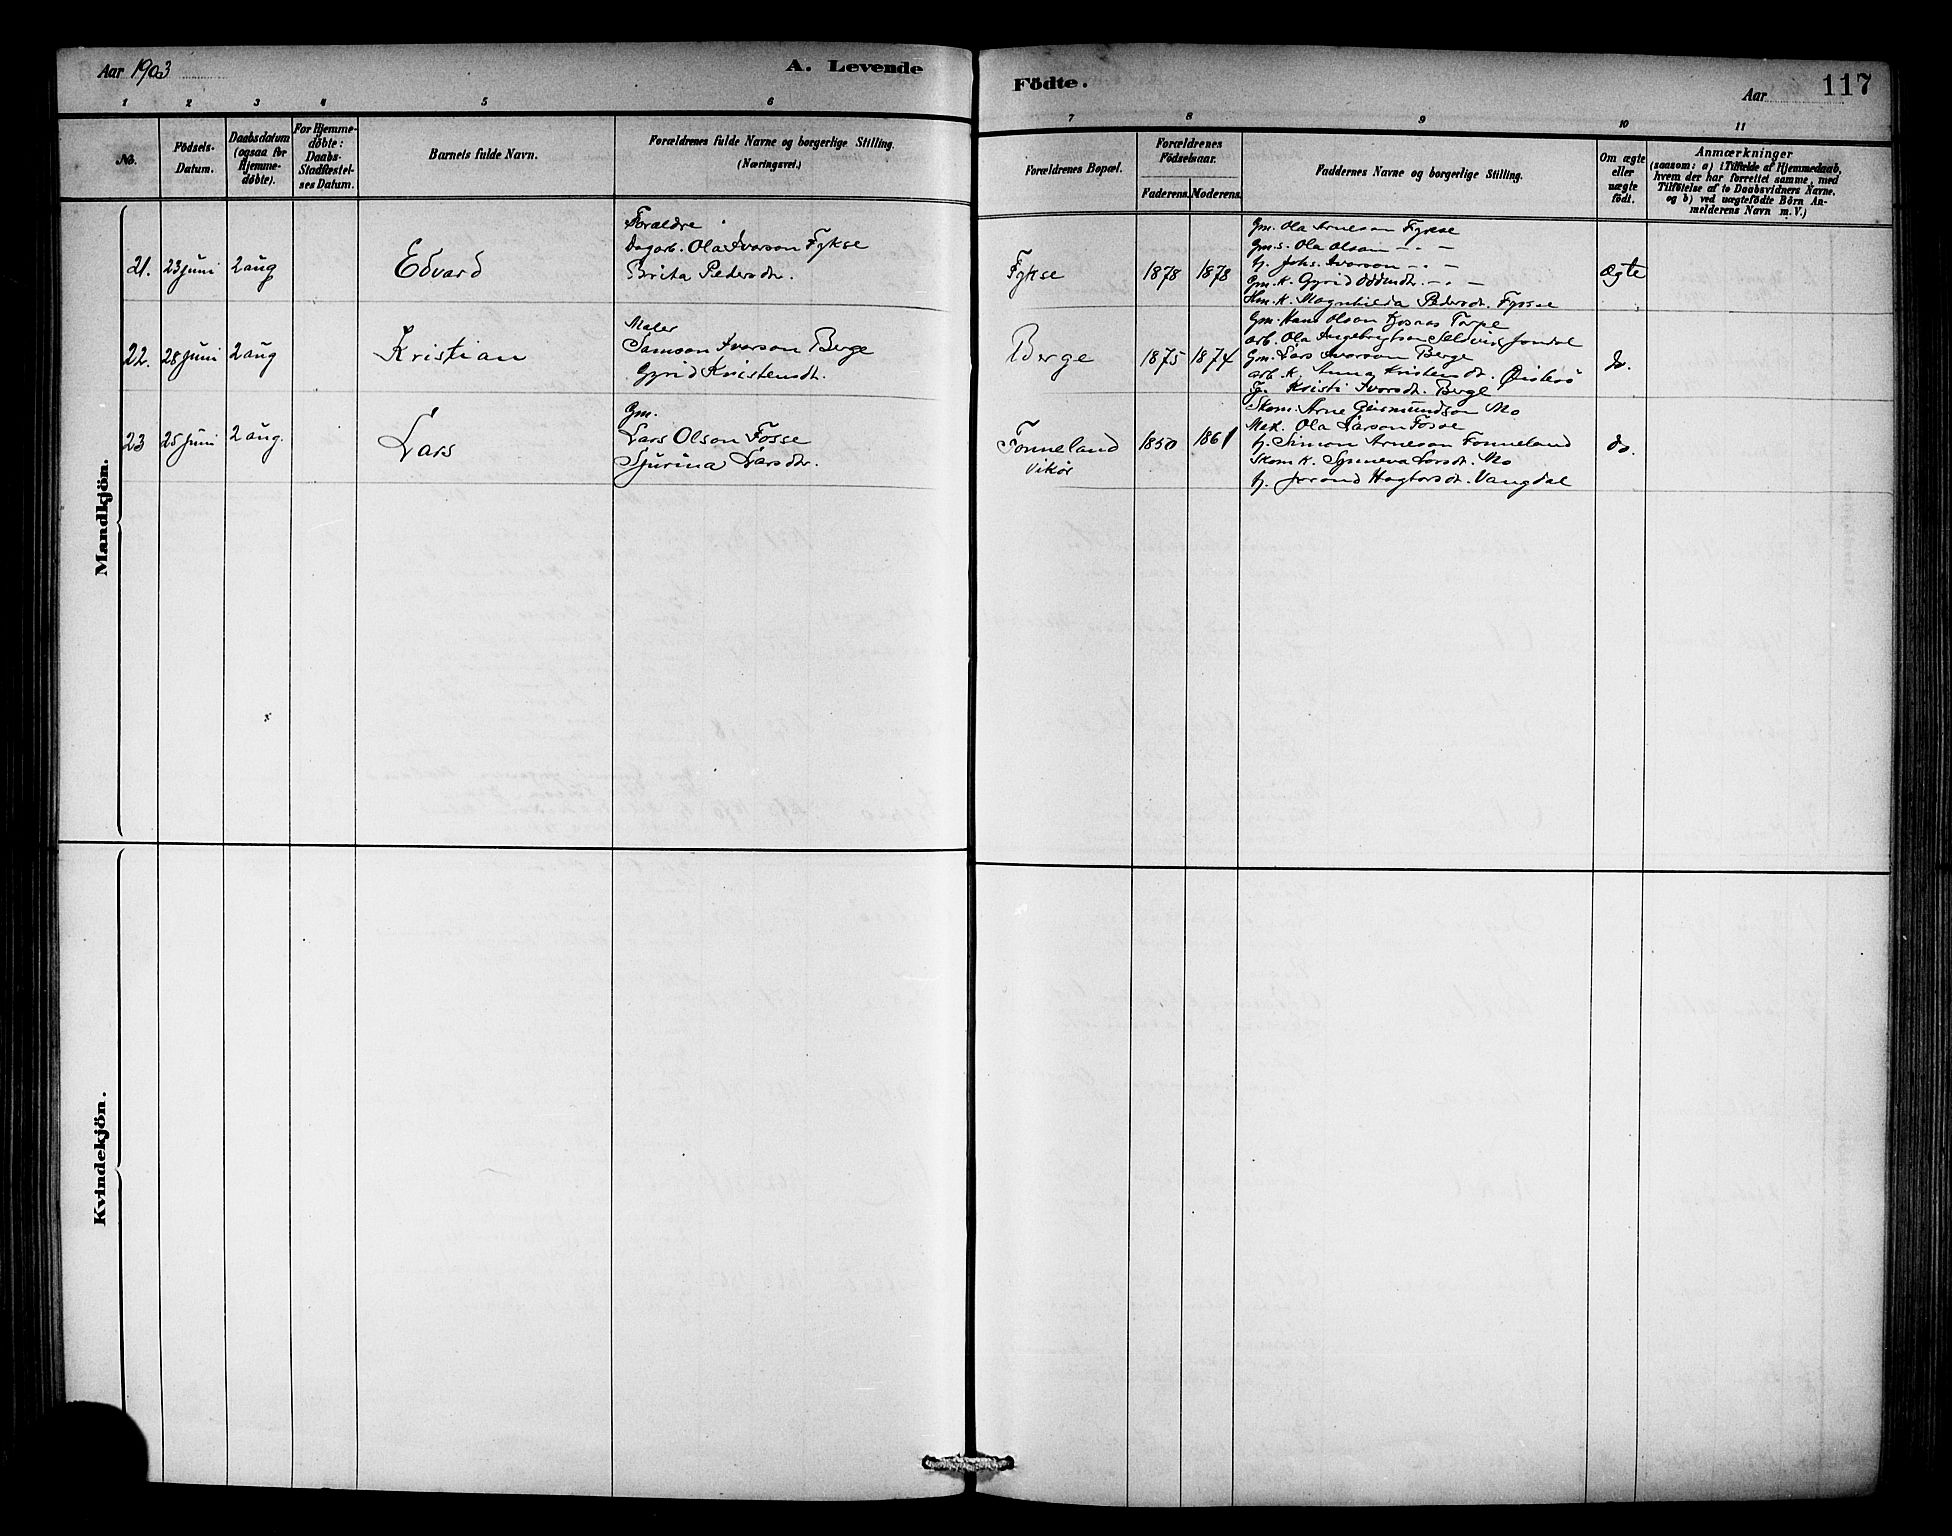 Aar 1903
A. Levende
Födte.
Aar
117
1 2 3 4 5 6 7 8 9 10 11
No.
Födsels-
Datum.
Daabsdatum
(ogsaa for
Hjemme-
döbte).
For Hjemme-
döbte:
Daabs-
Stadfæstel-
ses Datum.
Barnets fulde Navn.
Forældrenes fulde Navne og borgerlige Stilling.
(Næringsvei.)
Forældrenes Bopæl.
Forældrenes
Födselsaar.
Faderens. Moderens.
Faddernes Navne og borgerlige Stilling.
Om ægte
eller
uægte
födt.
Anmærkninger
(saasom: a) i Tilfælde af Hjemmedaab,
hvem der har forrettet samme, med
Tilföielse af to Daabsvidners Navne,
og b) ved uægtefödte Börn An-
melderens Navn m. V.)
Mandkjön.
21. 23 juni 2 aug Edvard
Foraldre
Dagarb. Ola Ivarson Fykse
Brita Pedersdr.
Fykse 1878 1878
Gm. Ola Arneson Fykse
Gm.s. Ola Olson - " -
U. Johs. Ivarson - " -
Gm. K. Gyrid Oddsdtr. - " -
Hm. K. Magnhilda Pedersdr. Fosse
Ægte
22. 28 juni 2 aug Kristian
Maler
Samson Ivarson Berge
Gyrid Kristensdt.
Berge 1875 1874
Gm. Hans Olson Torpe
Arb. Ola Ingebrigtson Jondal
Gm. Lars Ivarson Berge
arb. K. Anna Kristensdt. Øistesö
Kristi Ivarsdt. Berge
do.
23 25 juni 2 aug. Lars
Gm.
Lars Olson Fosse
Sjurina Larsdtr.
Tonneland
Vikör
1850 1861
Skom. Arne Geirmundson Mo
Ola Larson Fosse
U. Simon Arneson Tonneland
Skom K. Synneva Larsdt. Mo
U. Jorand Hagtorsdt. Vangdal
do.
Kvindekjön.